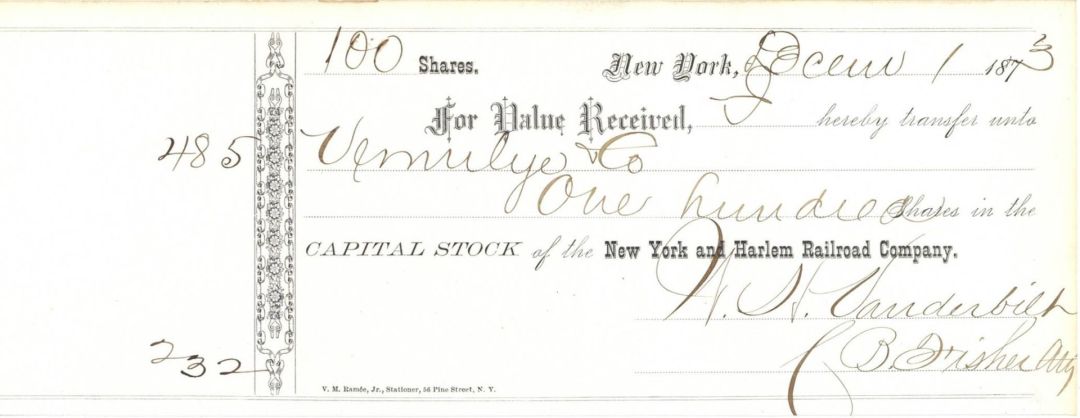 100 Shares. New York, Decem 1 1873
For Value Received, I hereby transfer unto
485 Vermilye & Co
One hundred Shares in the
CAPITAL STOCK of the New York and Harlem Railroad Company.
W. H. Vanderbilt
C B. Fisher Atty
232
V. M. Ramée, Jr., Stationer, 56 Pine Street, N. Y.